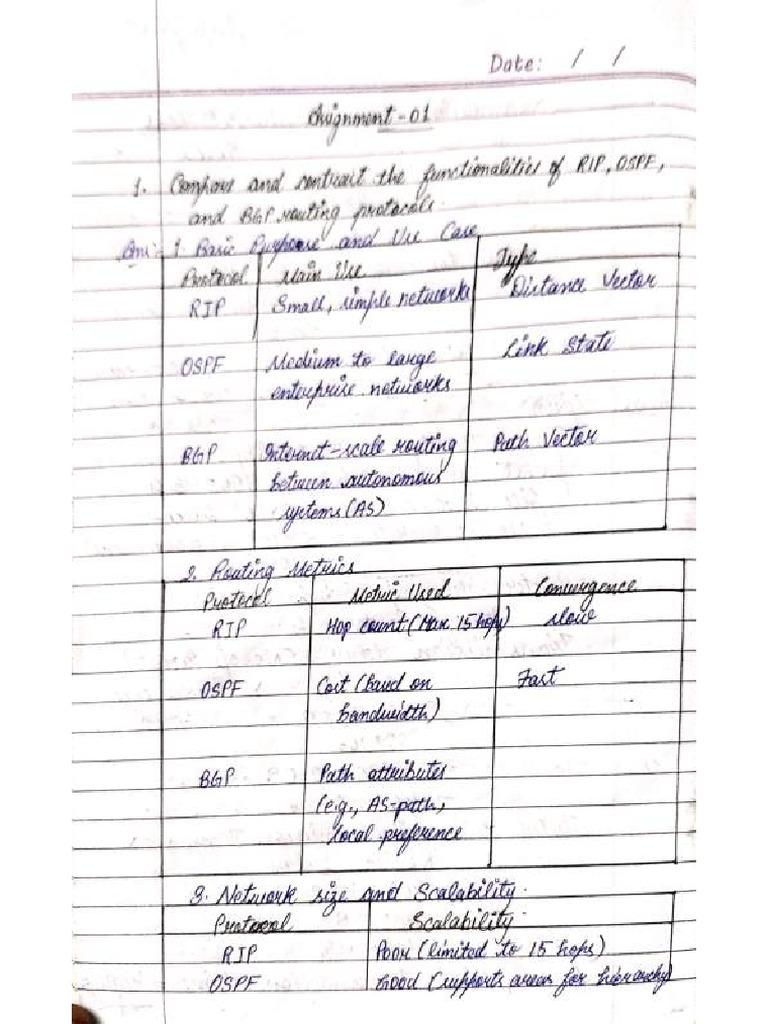 Date: / /
Assignment-01
1. Compare and contrast the functionalities of RIP, OSPF,
and BGP routing protocols.
Ans:- 1 Basic Purpose and Use Case
Protocol Main Use Type
RIP Small, simple networks Distance Vector
OSPF Medium to large Link State
enterprise networks
BGP Internet-scale routing Path Vector
between autonomous
systems (AS)
2. Routing Metrics
Protocol Metric Used Convergence
RIP Hop count (Max 15 hops) Slow
OSPF Cost (based on Fast
bandwidth)
BGP Path attributes
(e.g., AS-path,
local preference
3. Network size and Scalability.
Protocol Scalability.
RIP Poor (limited to 15 hops)
OSPF Good (supports areas for hierarchy)